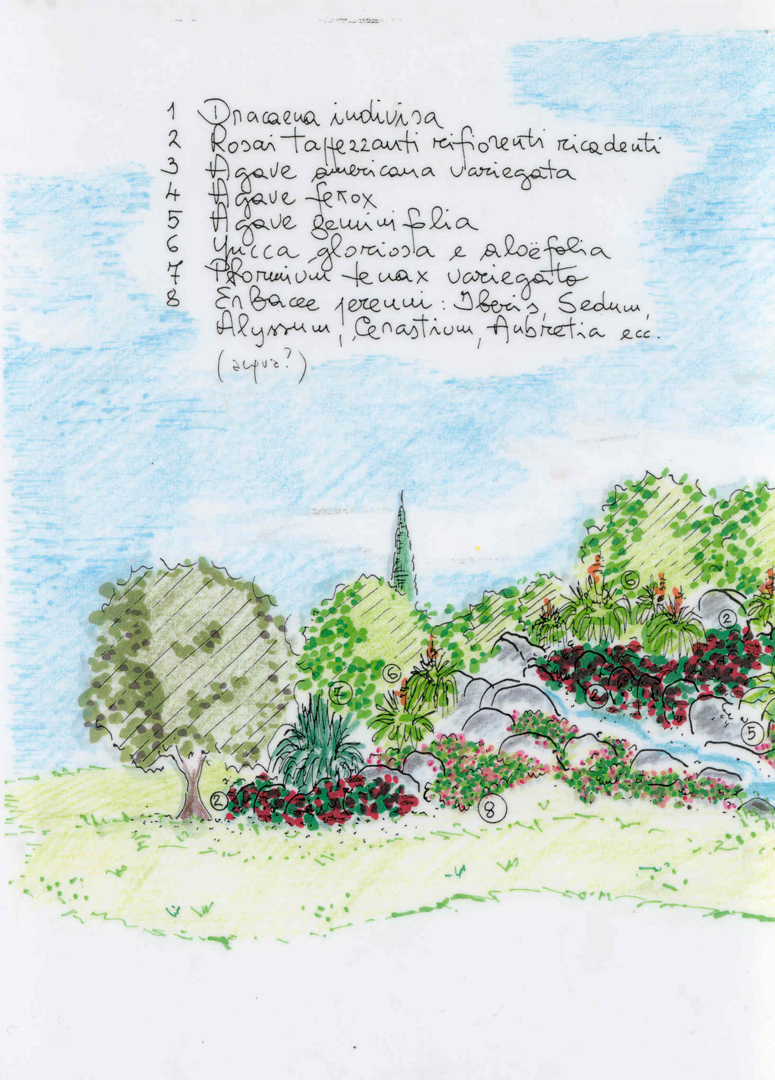 1 Dracaena indivisa
2 Rosai tappezzanti rifiorenti ricadenti
3 Agave americana variegata
4 Agave ferox
5 Agave geminifolia
6 Yucca gloriosa e aloëfolia
7 Phormium tenax variegato
8 Erbacee perenni: Iberis, Sedum,
Alyssum, Cerastium, Aubretia ecc.
(acqua?)
6
2
6
7
2
5
2
8